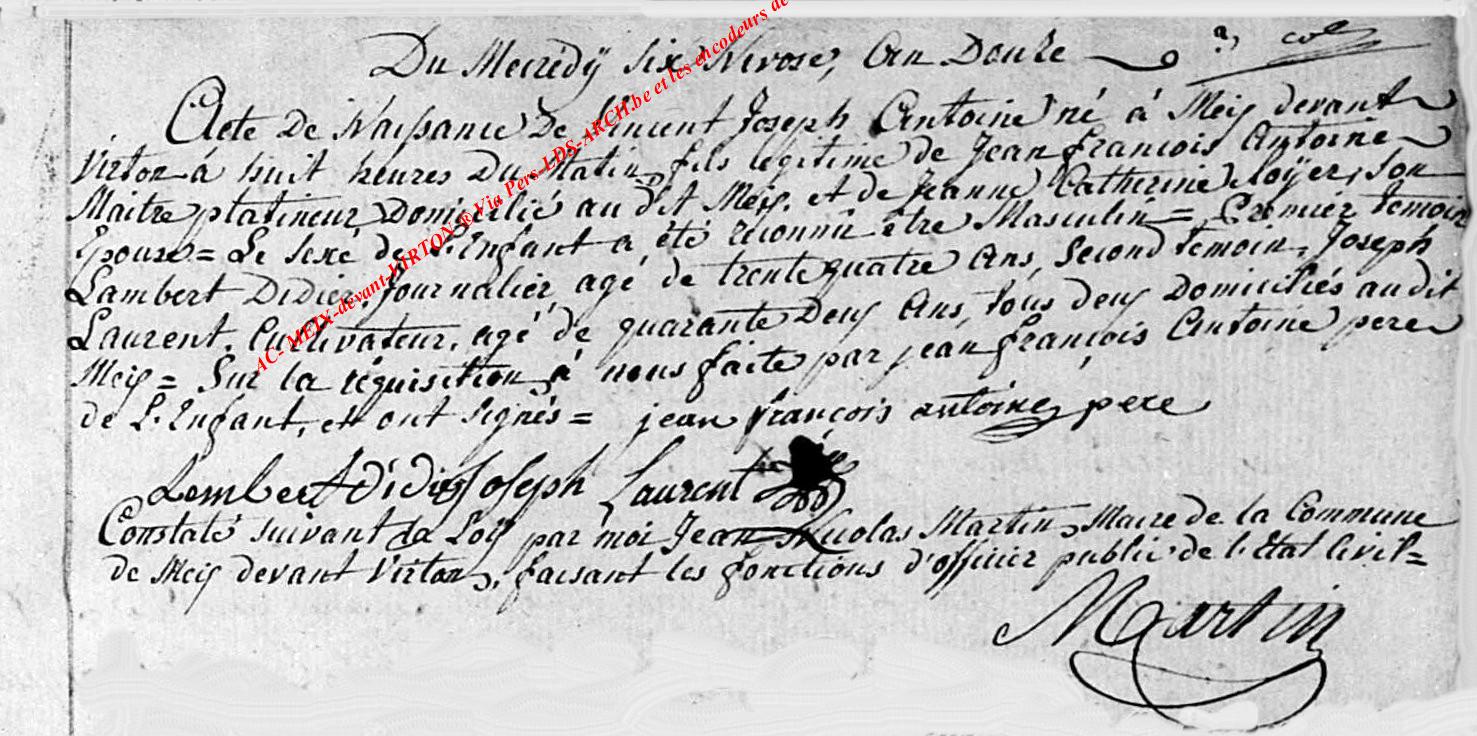 Du Mecredÿ six Nivose, an Douze
Acte De Naissance De Vincent Joseph Antoine né à Meix devant
Virton à huit heures Du Matin, fils légitime de Jean françois Antoine
Maitre platineur Domicilié au dit Meix, et de Jeanne Catherine loÿer, Son
Epouse = Le Sexe de L'Enfant a été reconnu être Masculin = Premier temoin
Lambert Didier, Journalier, agé de trente quatre ans, Second temoin, Joseph
Laurent, Cultivateur, agé de quarante Deux ans, tous deux Domiciliés au dit
Meix = Sur la réquisition à nous faite par jean françois Antoine pere
de L'Enfant, et ont signés = jean françois antoine pere
Lembert didier Joseph Laurent
Constaté suivant La Loÿ par moi Jean Nicolas Martin, Maire de la Commune
de Meix devant Virton, faisant les fonctions d'officier public de l'etat Civil =
Martin
AC- MEIX-devant-VIRTON ® Via Pers-LDS-ARCH.be et les encodeurs de